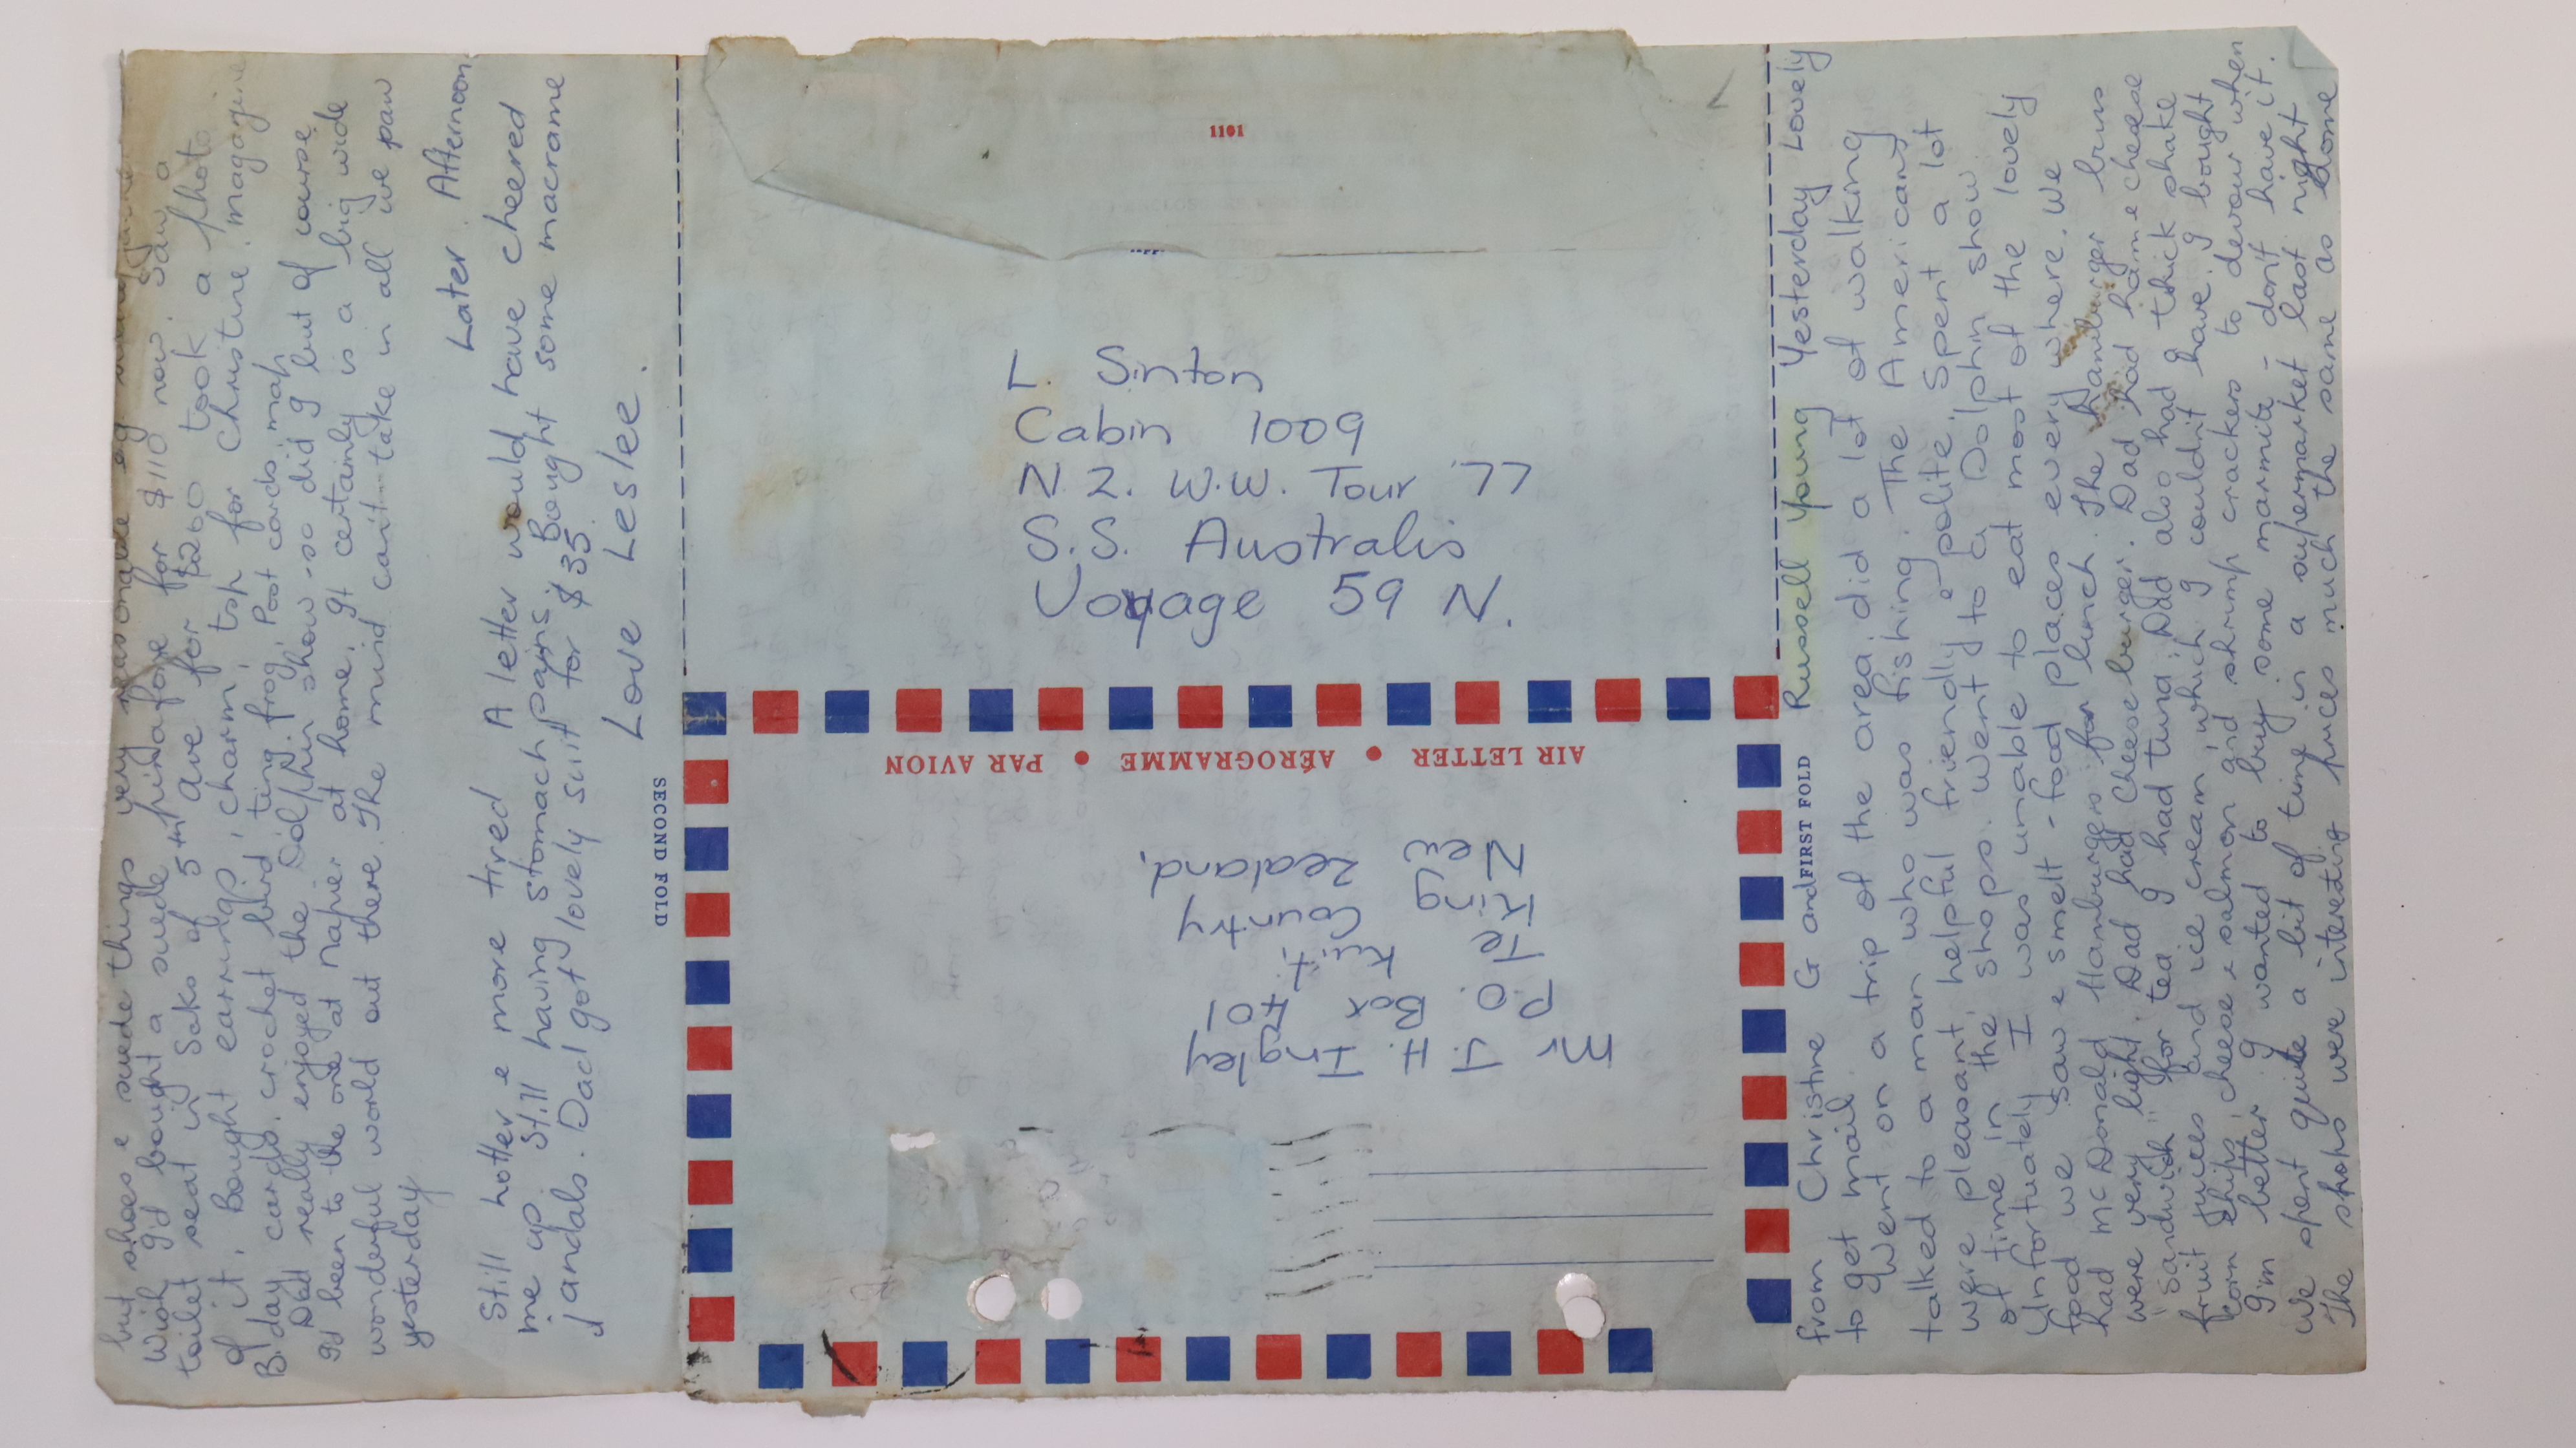 1101
L. Sinton
Cabin 1009
N.Z. W.W. Tour '77
S.S. Australis
Voyage 59 N.
AIR LETTER • AÉROGRAMME • PAR AVION
Mr J. H. Ingley
P.O. Box 401
Te Kuiti
King County
New Zealand.
FIRST FOLD
SECOND FOLD
from Christine G and Russell Young Yesterday Lovely
to get mail.
Went on a trip of the area, did a lot of walking
talked to a man who was fishing. The Americans
were pleasant, helpful friendly e polite. Spent a lot
of time in the shops. Went to a Dolphin show
Unfortunately I was unable to eat most of the lovely
food we saw e smelt - food places every where. We
had McDonald Hamburgers for lunch. The Hamburger buns
were very light. Dad had Cheeseburger. Dad had ham e cheese
"sandwich" for tea I had tuna, Dad also had a thick shake
fruit juices and ice cream, which I couldn't have. I bought
corn chips, cheese e salmon and shrimp crackers to devour when
I'm better I wanted to buy some marmite - don't have it.
We spent quite a bit of time in a supermarket last night
The shops were interesting prices much the same as home
but shoes e suede things very reasonable eg
Wish I'd bought a suede pinafore for $110 now. Saw a
toilet seat in Saks of 5th Ave for $260 took a photo
of it. Bought earrings, charm, top for Christine. magazine
B'day cards, crochet bird, ting frog, Post cards, map
Dad really enjoyed the Dolphin show - so did I but of course
I'd been to the one at Napier at home. It certainly is a big wide
wonderful world out there. The mind can't take in all we saw
yesterday
Later. Afternoon.
Still hotter e more tired A letter would have cheered
me up. Still having stomach pains. Bought some macrame
jandals. Dad got lovely suit for $35.
Love Leslee.